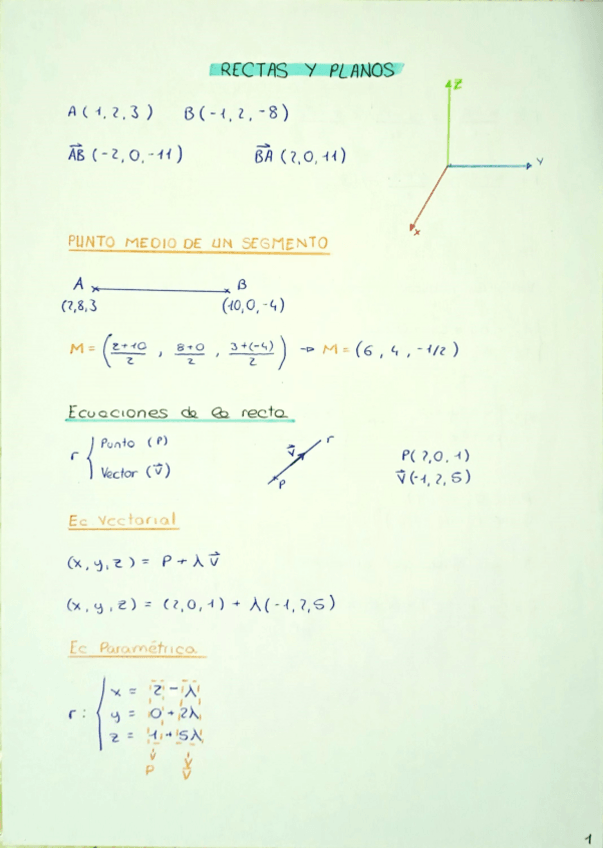 RECTAS Y PLANOS
A(1,2,3) B(-1,2,-8)
AB⃗ (-2,0,-11) BA⃗ (2,0,11)
Z
Y
X
PUNTO MEDIO DE UN SEGMENTO
A B
(2,8,3 (10,0,-4)
M = ( (2+10)/2 , (8+0)/2 , (3+(-4))/2 ) → M = (6, 4, -1/2)
Ecuaciones de la recta
r { Punto (P)
Vector (v⃗)
v⃗ r
P
P(2,0,1)
v⃗(-1,2,5)
Ec Vectorial
(x,y,z) = P + λ v⃗
(x,y,z) = (2,0,1) + λ(-1,2,5)
Ec Paramétrica
r: { x = 2 - λ
y = 0 + 2λ
z = 1 + 5λ
P v⃗
1